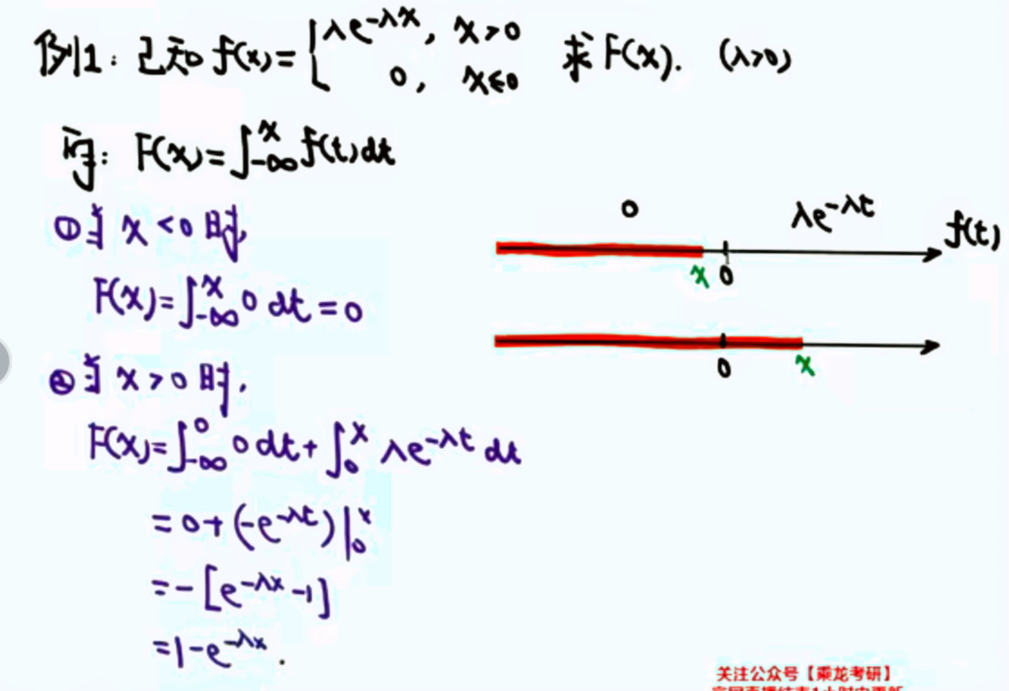 例1: 已知 f(x) = { λe^{-λx}, x>0
0, x≤0 求 F(x). (λ>0)
解: F(x) = ∫_{-∞}^{x} f(t)dt
① 当 x<0 时,
F(x) = ∫_{-∞}^{x} 0 dt = 0
② 当 x>0 时,
F(x) = ∫_{-∞}^{0} 0 dt + ∫_{0}^{x} λe^{-λt} dt
= 0 + (-e^{-λt})|_{0}^{x}
= -[e^{-λx} - 1]
= 1 - e^{-λx}.
0 λe^{-λt} f(t)
x 0
0 x
关注公众号【乘龙考研】